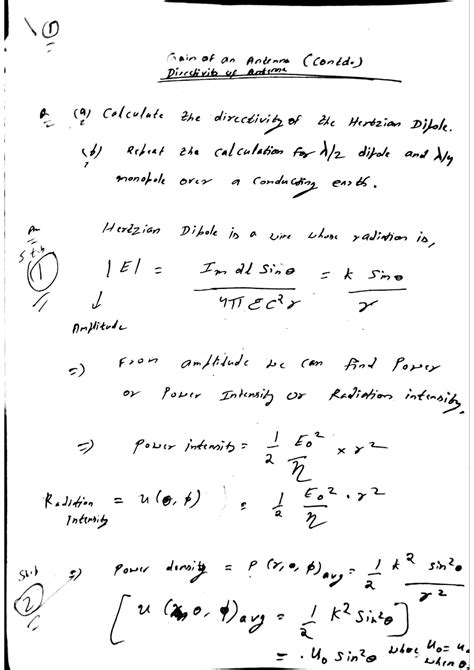 ①
Gain of an Antenna (Contd.)
Directivity of Antenna
Q (a) Calculate the directivity of the Hertzian Dipole.
(b) Repeat the calculation for λ/2 dipole and λ/4
monopole over a conducting earth.
A
Hertzian Dipole is a wire whose radiation is,
Step
① |E| = Im dl Sinθ / 4πεc²r = k Sinθ / r
↓
Amplitude
=) From amplitude we can find Power
or Power Intensity or Radiation intensity.
=) Power intensity = 1/2 E₀²/η × r²
Radiation Intensity = u(θ, φ) = 1/2 E₀²/η · r²
Step
② =) Power density = P(r, θ, φ)avg = 1/2 k² sin²θ / r²
[u(θ, φ)avg = 1/2 K² Sin²θ]
= U₀ Sin²θ where U₀ =
when